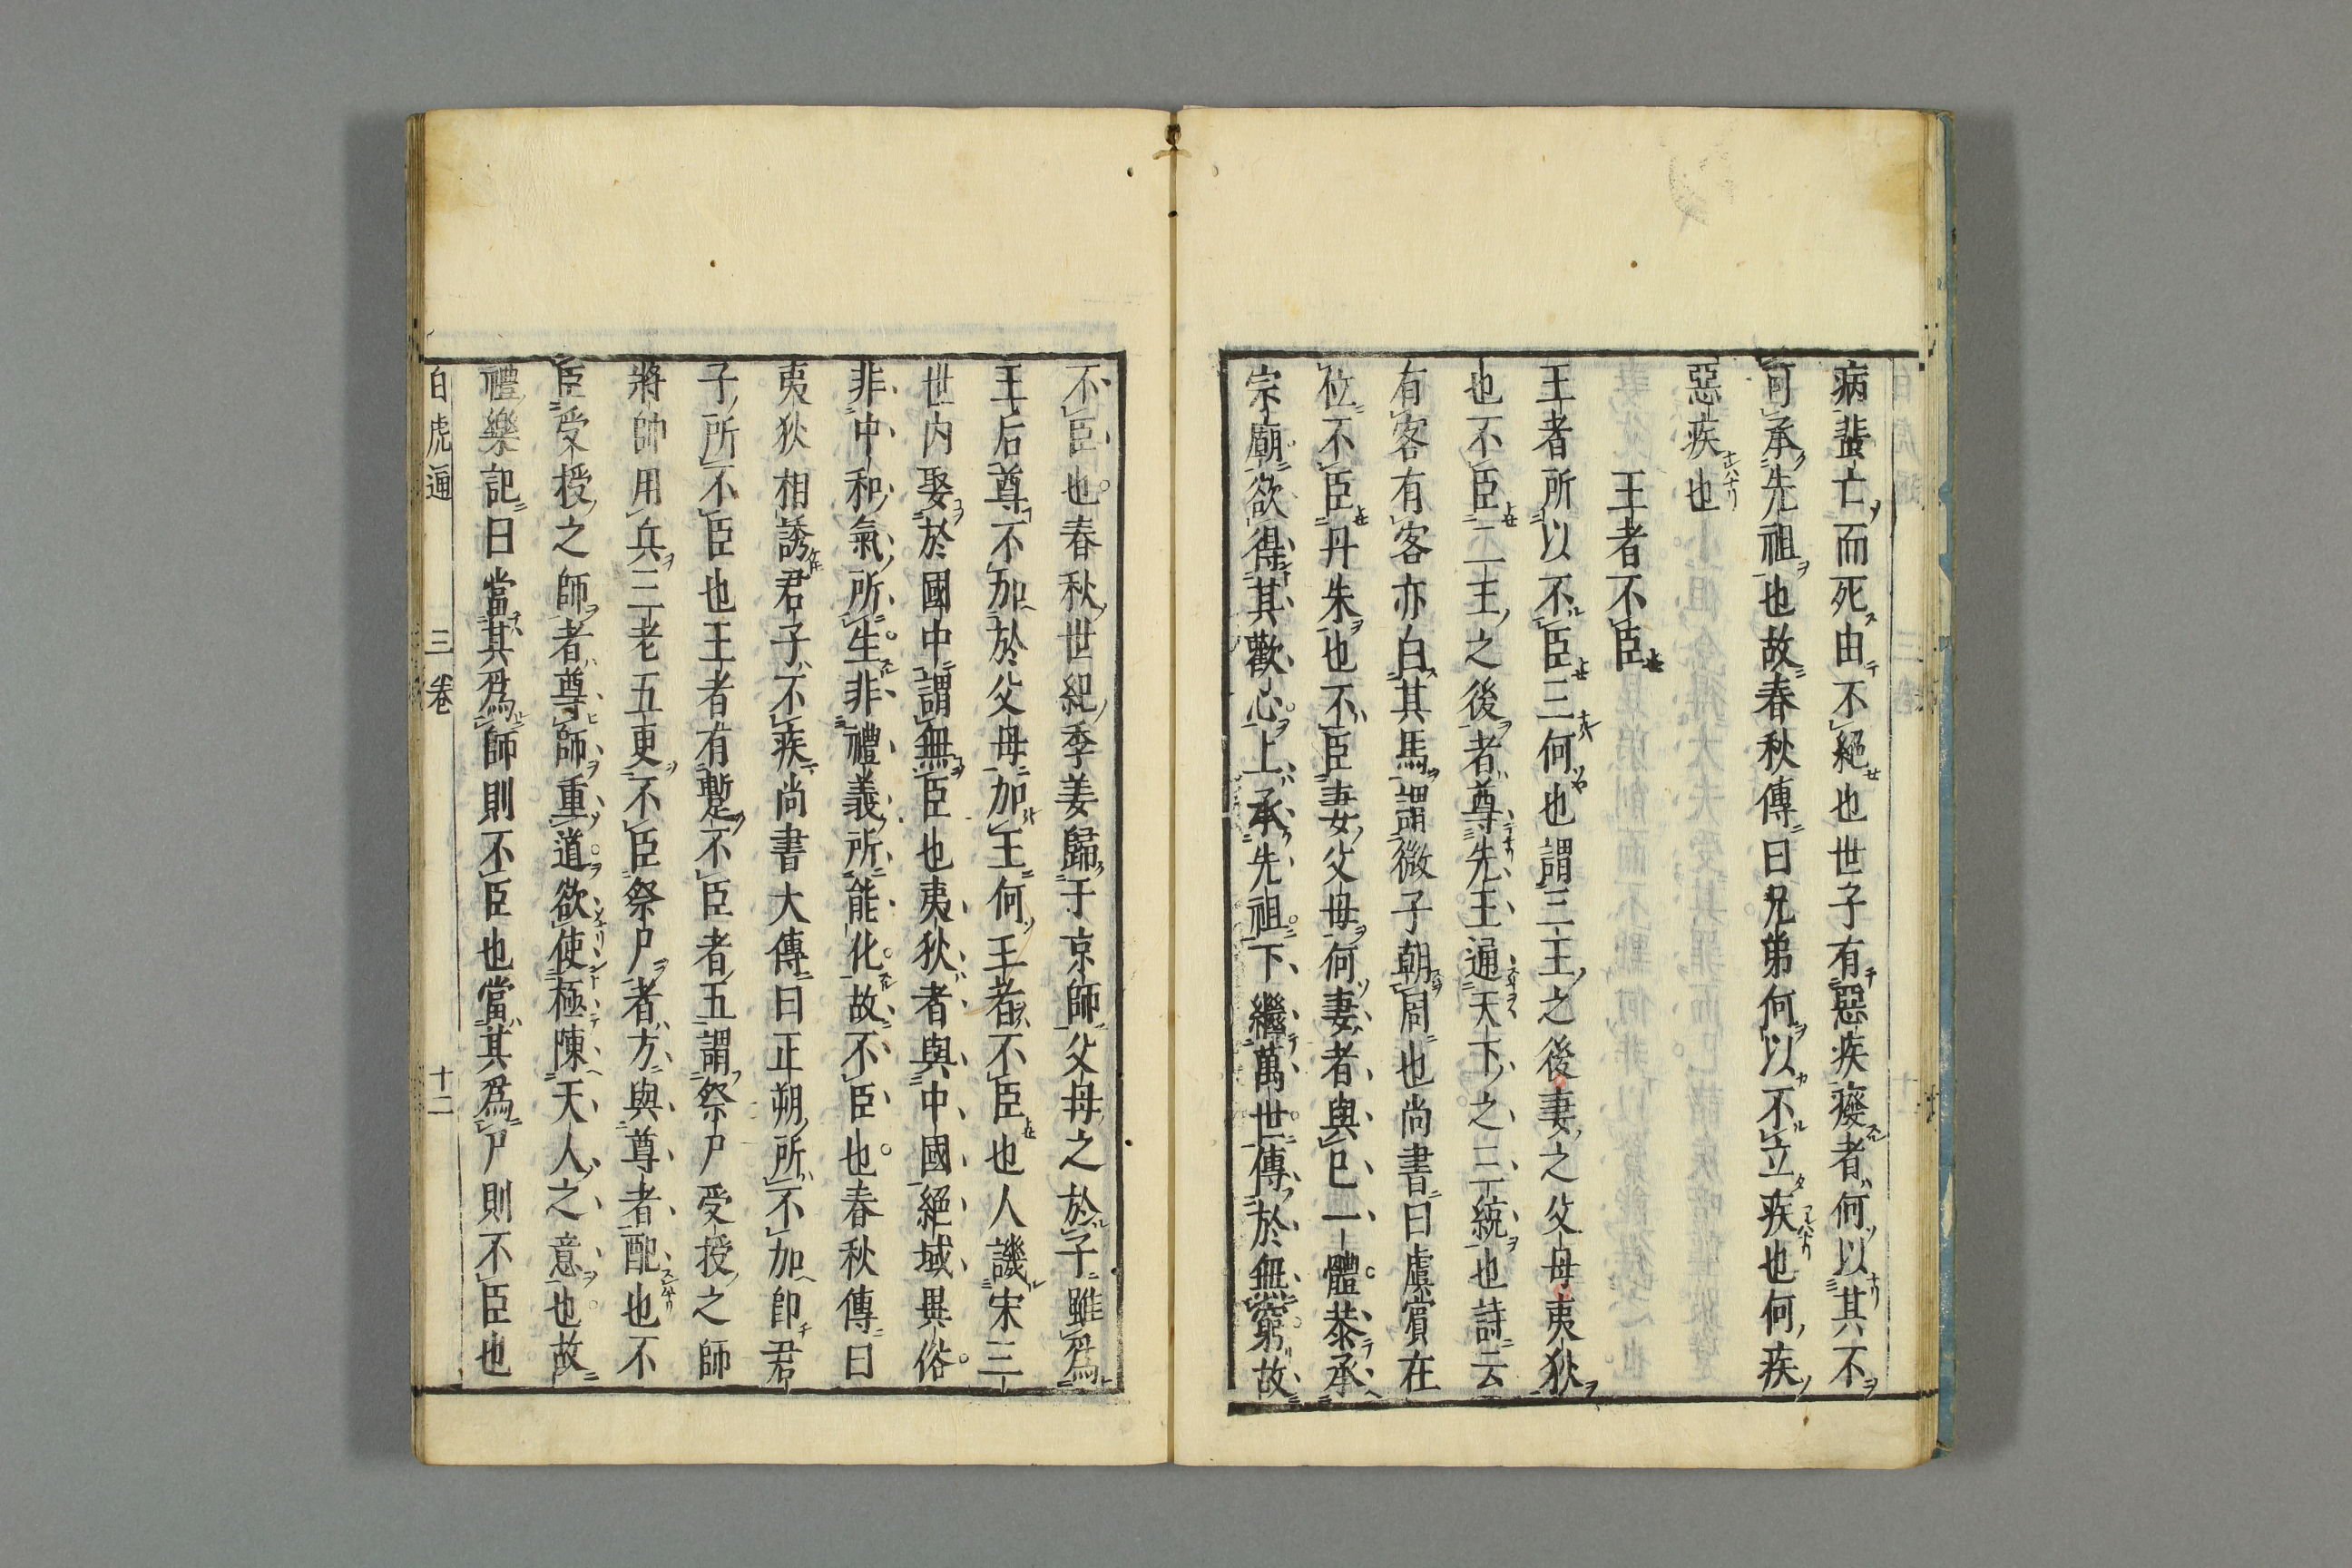 病蜚亡而死由不絕也世子有惡疾癈者何以其不
可承先祖也故春秋傳曰兄弟何以不立疾也何疾
惡疾也
王者不臣
王者所以不臣三何也謂三王之後妻之父母夷狄
也不臣二王之後者尊先王通天下之三統也詩云
有客有客亦白其馬謂微子朝周也尚書曰虞賓在
位不臣丹朱也不臣妻父母何妻者與已一體恭承
宗廟欲得其歡心上承先祖下繼萬世傳於無窮故
不臣也春秋世紀季姜歸于京師父母之於子雖爲
王后尊不加於父母加王何王者不臣也人譏宋三
世内娶於國中謂無臣也夷狄者與中國絕域異俗
非中和氣所生非禮義所能化故不臣也春秋傳曰
夷狄相誘君子不疾尚書大傳曰正朔所不加即君
子所不臣也王者有蹔不臣者五謂祭尸受授之師
將帥用兵三老五更不臣祭尸者方與尊者配也不
臣受授之師者尊師重道欲使極陳天人之意也故
禮樂記曰當其爲師則不臣也當其爲尸則不臣也
白虎通　三卷　十二